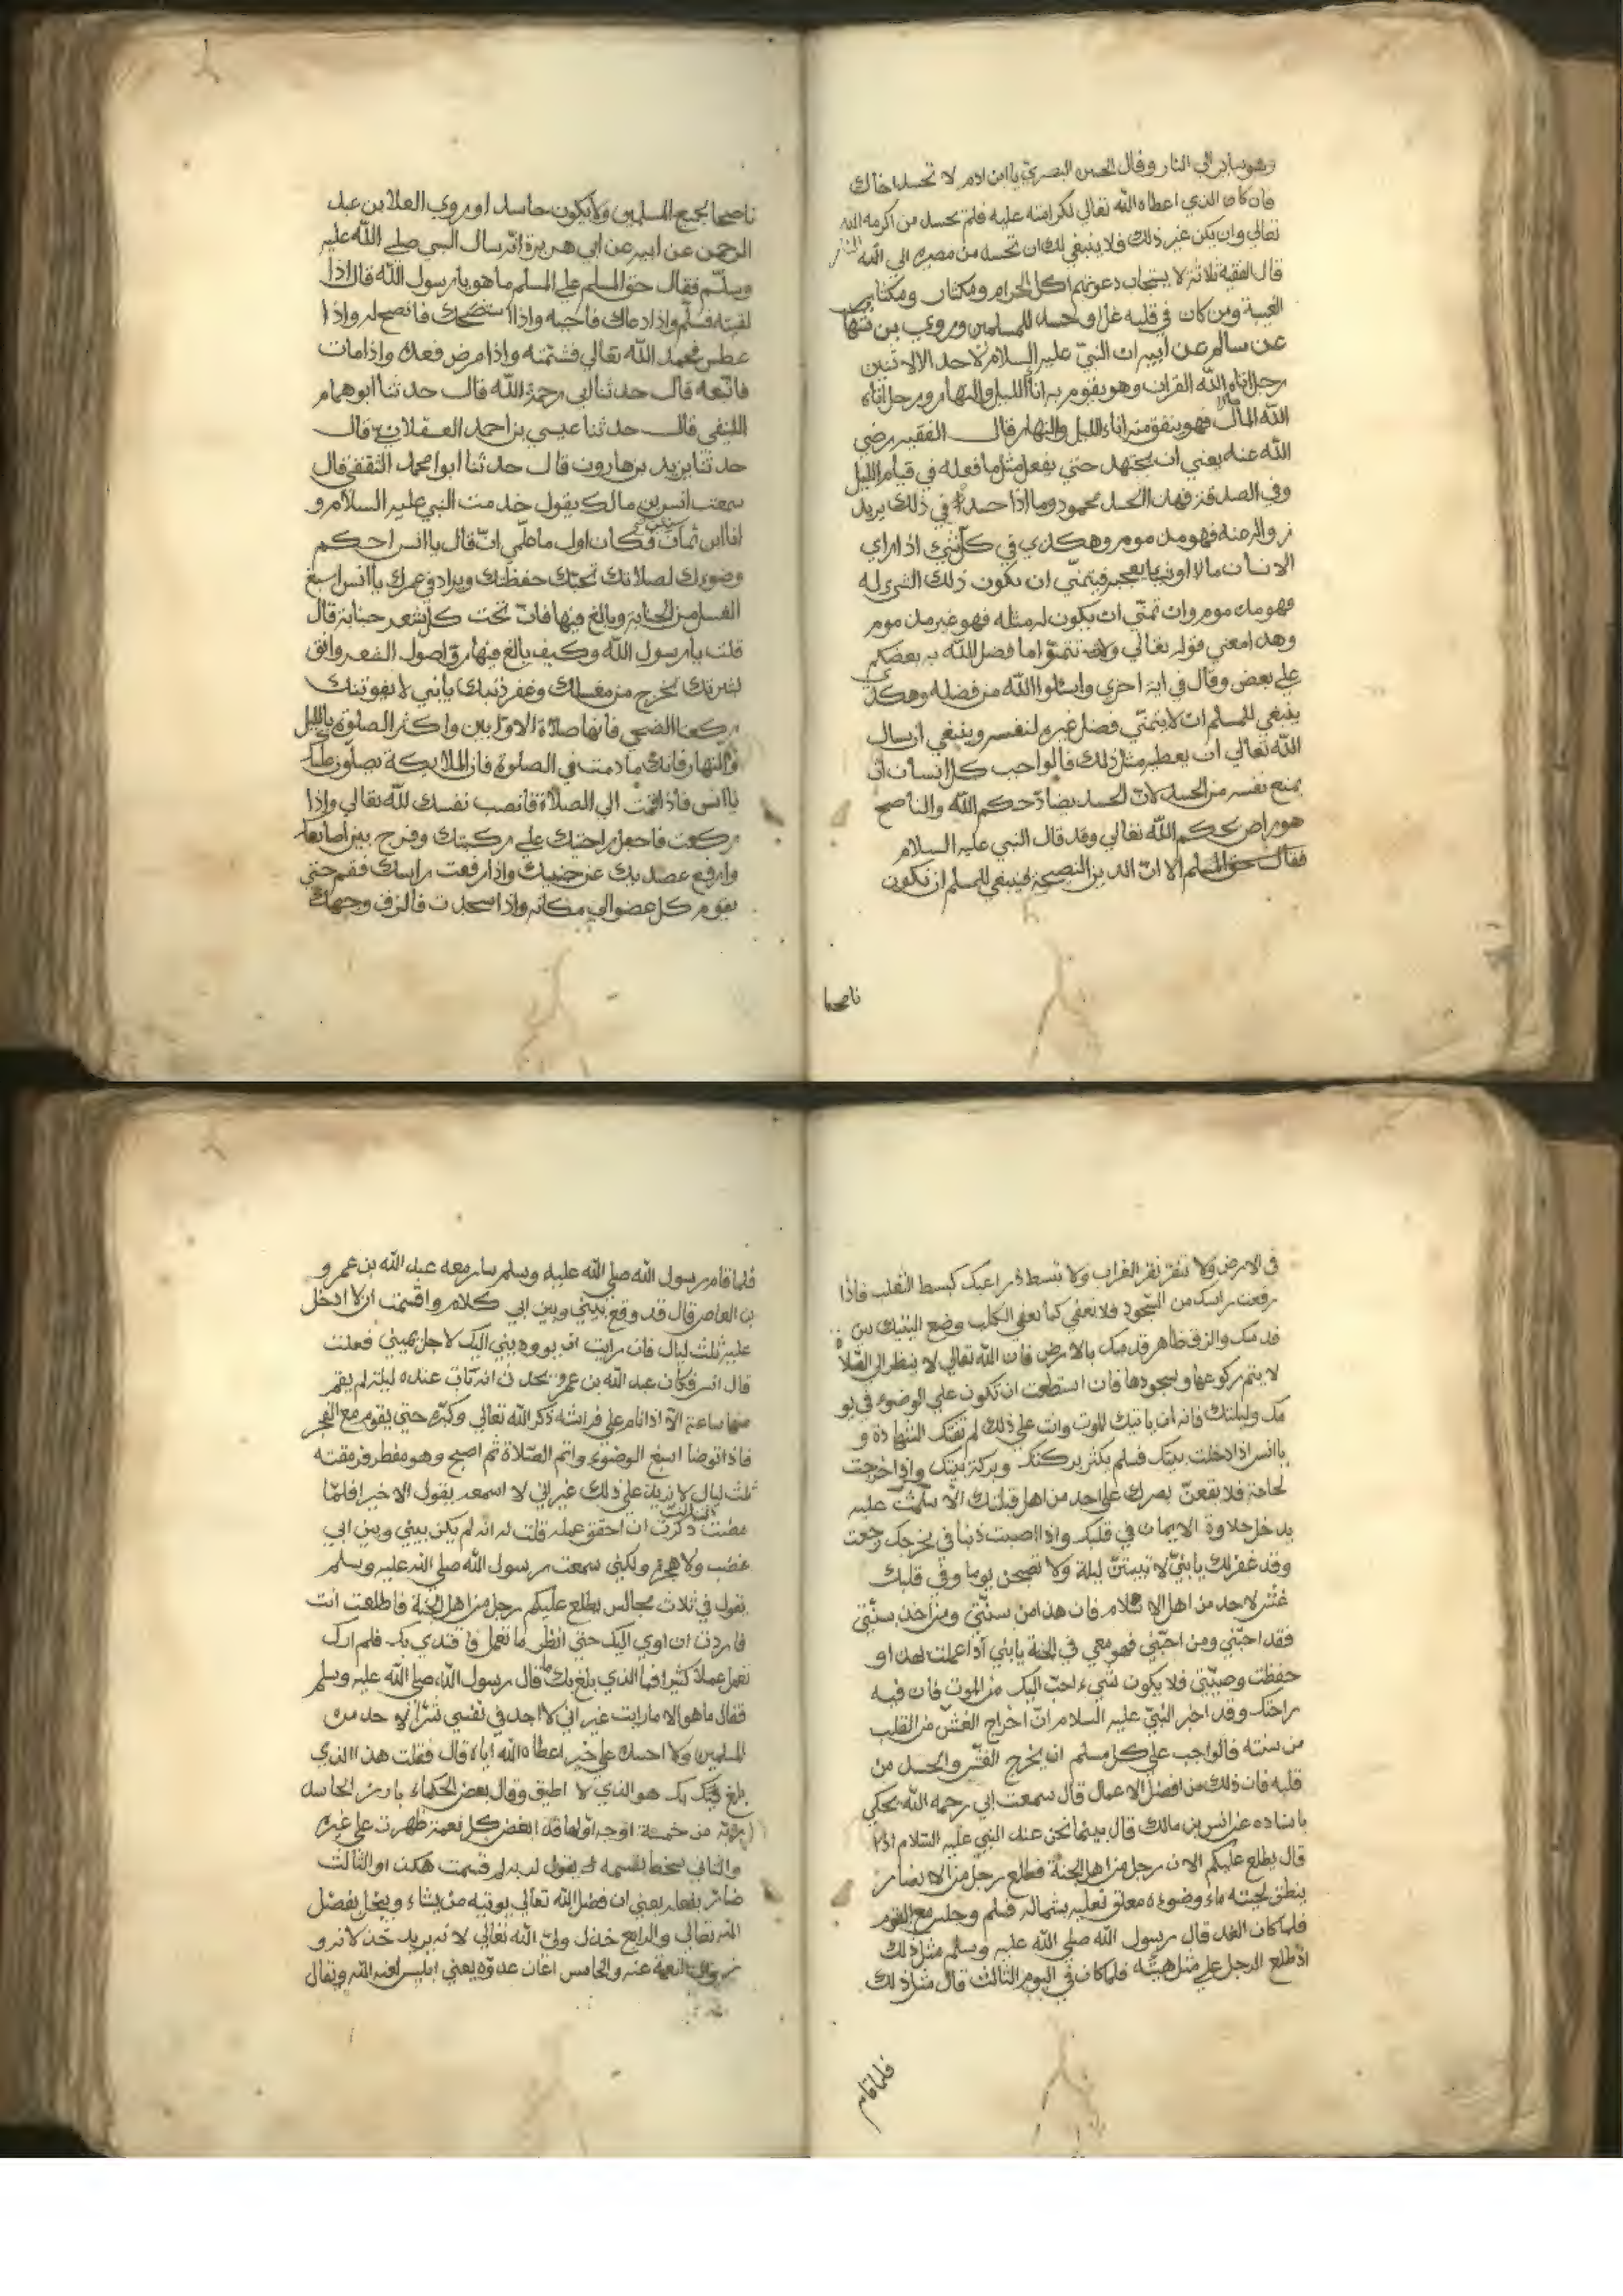 وهو يبادر الي النار وقال الحسن البصري يا ابن ادم لا تحسد اخاك
فان كان الذي اعطاه الله تعالي لكرامته عليه فلم تحسد من اكرمه الله
تعالي وان يكن غير ذلك فلا ينبغي لك ان تحسد من مصيره الي النار
قال الفقيه ثلاثة لا يستجاب دعوتهم اكل الحرام ومكثار ومكثار
الغيبة ومن كان في قلبه غل او حسد للمسلمين وروي بن شهاب
عن سالم عن ابيه ان النبي عليه السلام لا حسد الا لاثنين
رجل اتاه الله القران وهو يقوم به اناء الليل والنهار ورجل اتاه
الله المال فهو ينفق منه اناء الليل والنهار قال الفقيه رضي
الله عنه يعني ان يجتهد حتي يفعل مثل ما فعله في قيام الليل
وفي الصدقة فهذا الحسد محمود وما اذا حسده في ذلك يريد
زواله عنه فهو مذموم وهكذي في كل شيء اذا راي
الانسان مالا او شيا يعجبه فيتمني ان يكون ذلك الشي له
فهو مذموم وان تمني ان يكون له مثله فهو غير مذموم
وهذا معني قوله تعالي ولا تتمنوا ما فضل الله به بعضكم
علي بعض وقال في اية اخري واسئلوا الله من فضله وهكذي
ينبغي للمسلم ان لا يتمني فضل غيره لنفسه وينبغي ان يسال
الله تعالي ان يعطيه مثل ذلك فالواجب كل انسان ان
يمنع نفسه من الحسد لان الحسد يضاد حكم الله والناصح
هو راض بحكم الله تعالي وقد قال النبي عليه السلام
فقال حق المسلم الا ان الدين النصيحة فينبغي للمسلم ان تكون
ناصحا
ناصحا لجميع المسلمين ولا يكون حاسدا وروي العلا بن عبد
الرحمن عن ابيه عن ابي هريرة انه سال النبي صلي الله عليه
وسلم فقال حق المسلم علي المسلم ما هو يا رسول الله قال اذا
لقيته فسلم واذا دعاك فاجبه واذا استنصحك فانصح له واذا
عطس فحمد الله تعالي فشمته واذا مرض فعده واذا مات
فاتبعه قال حدثنا ابي رحمة الله قال حدثنا ابو همام
قال حدثنا عيسي بن احمد العسقلاني قال
حدثنا يزيد بن هارون قال حدثنا ابوا محمد الثقفي قال
سمعت انس بن مالك يقول خدمت النبي عليه السلام و
انا ابن ثمان سنين فكان اول ما علمني ان قال يا انس احكم
وضوءك لصلاتك تحبك حفظتك ويزاد في عمرك يا انس اسبغ
الغسل من الجنابة وبالغ فيها فان تحت كل شعر جنابة قال
قلت يا رسول الله وكيف بالغ فيها روي اصول الشعر وانق
بشرتك تخرج من مغسلك وغفر ذنبك يا بني لا يفوتنك
ركعتا الضحي فانها صلاة الاوابين واكثر الصلوة بالليل
والنهار فانك ما دمت في الصلوة فان الملايكة تصلون عليك
يا انس فاذا قمت الي الصلاة فانصب نفسك لله تعالي واذا
ركعت فاجعل راحتيك علي ركبتك وفرج بين اصابعك
وارفع عضديك عن جنبيك واذا رفعت راسك فقم حتي
يقوم كل عضو الي مكانه واذا سجدت فالزق وجهك
في الارض ولا تنقر نقر الغراب ولا تبسط ذراعيك كبسط الثعلب فاذا
رفعت راسك من السجود فلا تقعي كما يقعي الكلب وضع اليتيك بين
قدميك والزق ظاهر قدميك بالارض فان الله تعالي لا ينظر الي الصلا
لا يتم ركوعها وسجودها فان استطعت ان تكون علي الوضوء في يو
مك وليلتك فانه ان ياتيك الموت وانت علي ذلك لم تفتك الشهادة و
يا انس اذا دخلت بيتك فسلم يكثر بركتك وبركة بيتك واذا خرجت
لحاجة فلا يقعن بصرك علي احد من اهل قبلتك الا سلمت عليه
يدخل حلاوة الايمان في قلبك واذا اصبت ذنبا في مخرجك رجعت
وقد غفر لك يا بني لا تبيتن ليلة ولا تصبحن يوما وفي قلبك
غش لاحد من اهل الاسلام فان هذا من سنتي ومن اخذ سنتي
فقد احبني ومن احبني فهو معي في الجنة يا بني اذا عملت لهذا و
حفظت وصيتي فلا يكون شيء احب اليك من الموت فان فيه
راحتك وقد اخبر النبي عليه السلام ان اخراج الغش من القلب
من سنته فالواجب علي كل مسلم ان يخرج الغش والحسد من
قلبه فان ذلك من افضل الاعمال قال سمعت ابي رحمه الله يحكي
باسناده عن انس بن مالك قال بينما نحن عند النبي عليه السلام اذا
قال يطلع عليكم الان رجل من اهل الجنة فطلع رجل من الانصار
ينطق لحيته ماء وضوءه معلق نعليه بشماله فسلم وجلس مع القوم
فلما كان الغد قال رسول الله صلي الله عليه وسلم مثل ذلك
اذ طلع الرجل علي مثل هيئته فلما كان في اليوم الثالث قال مثل ذلك
فلما قام
فلما قام رسول الله صلي الله عليه وسلم سار معه عبد الله بن عمرو
بن العاص قال قد وقع بيني وبين ابي كلام واقسمت ان لا ادخل
عليه ثلث ليال فان رايت ان يوويني اليك لاجل يميني فعلت
قال انس فكان عبد الله بن عمرو يحدث انه بات عنده ليلة لم يقم
منها ساعة الا اذا نام علي فراشه ذكر الله تعالي وكبره حتي يقوم مع الفجر
فاذا توضا اسبغ الوضوء واتم الصلاة ثم اصبح وهو مفطر فرمقته
ثلث ليال لا يزيد علي ذلك غير اني لا اسمعه يقول الا خيرا فلما
مضت الثلث ذكرت ان احقق عمله قلت له انه لم يكن بيني وبين ابي
غضب ولا هجرة ولكني سمعت رسول الله صلي الله عليه وسلم
يقول في ثلاث مجالس يطلع عليكم رجل من اهل الجنة فاطلعت انت
فاردت ان اوي اليك حتي انظر ما تعمل فاقتدي بك فلم ارك
تعمل عملا كثيرا فما الذي بلغ بك ما قال رسول الله صلي الله عليه وسلم
فقال ما هو الا ما رايت غير اني لا اجد في نفسي شرا لاحد من
المسلمين ولا احسد علي خير اعطاه الله اياه قال فقلت هذا الذي
بلغ بك هو الذي لا اطيق وقال بعض الحكماء بارز الحاسد
ربه من خمسة اوجه اولها قد ابغض كل نعمة ظهرت علي غيره
والثاني سخط بقسمه يقول لربه لم قسمت هكذا والثالث
ضائر بفعله يعني ان فضل الله تعالي يوتيه من يشاء ويبخل بفضل
الله تعالي والرابع خذل ولي الله تعالي لانه يريد خذلانه و
زوال النعمة عنه والخامس اعان عدوه يعني ابليس لعنه الله ويقال